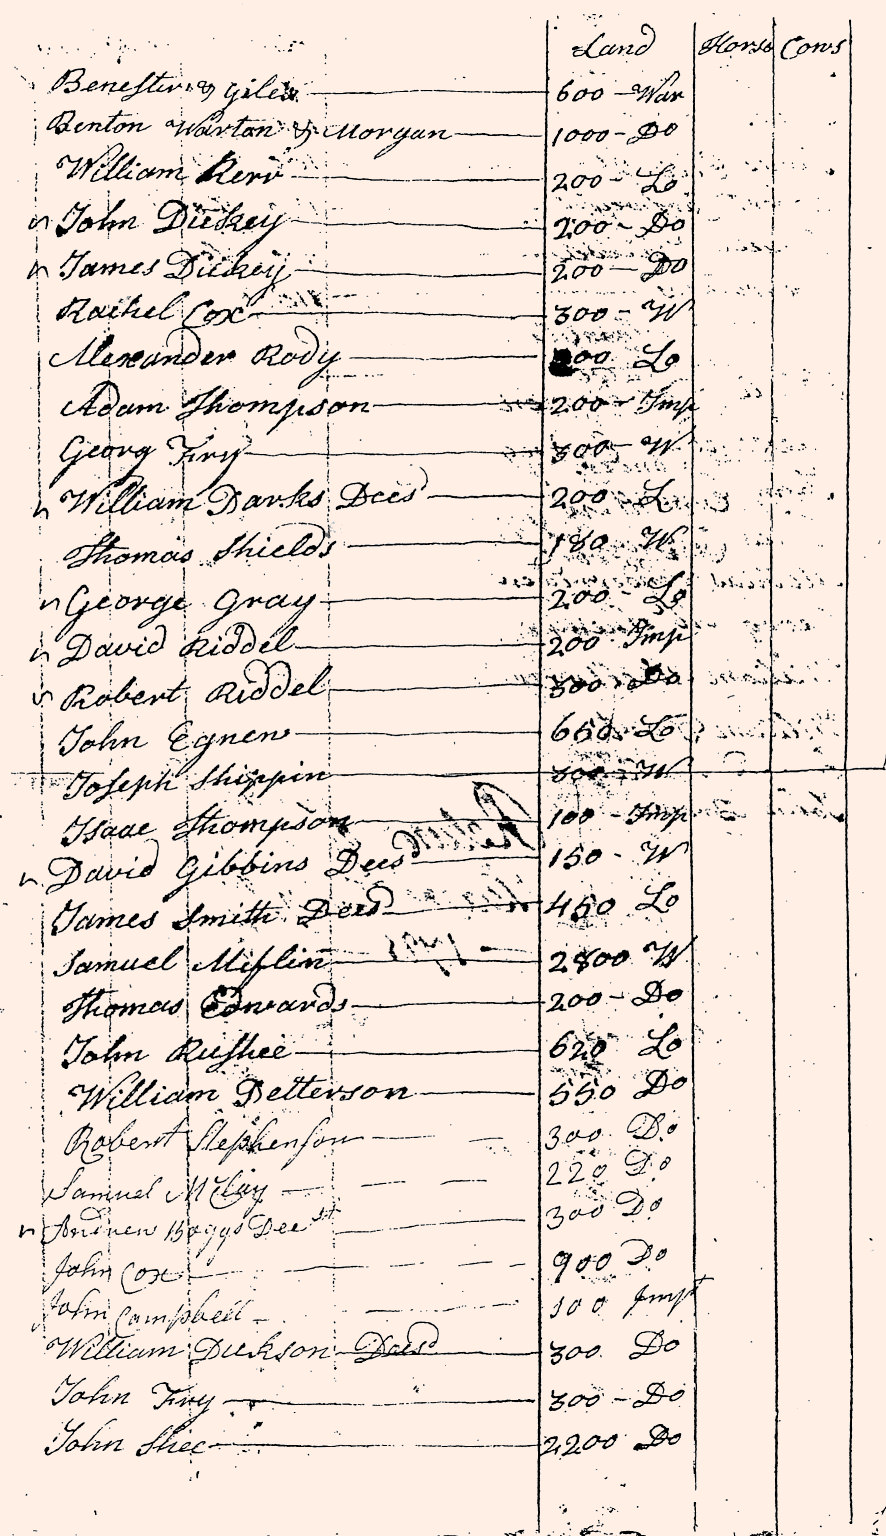 Land Horse Cows
Benester & Giles 600 - War
Benton Warton & Morgan 1000 - Do
William Kerr 200 - Lo
John Dickey 200 - Do
James Dickey 200 - Do
Rachel Cox 300 - W
Alexander Rody 00 Lo
Adam Thompson 200 - Imp
Georg Fry 300 - W
William Darks Deesd 200 - L
Thomas Shields 180 W
George Gray 200 - Lo
David Riddel 200 Imp
Robert Riddel 300 Do
John Egnew 650 Lo
Joseph Shippin 300 - W
Isaac Thompson 100 - Imp
David Gibbins Deesd 150 - W
James Smith Deesd 450 Lo
Samuel Miflin 2800 W
Thomas Edwards 200 - Do
John Rushee 620 Lo
William Petterson 550 Do
Robert Stephenson 300 Do
Samuel McClay 220 Do
Andrew Boggs Deest 300 Do
John Cox 900 Do
John Campbell 100 Impt
William Dickson Deesd 300 Do
John Fry 300 - Do
John Shee 2200 Do